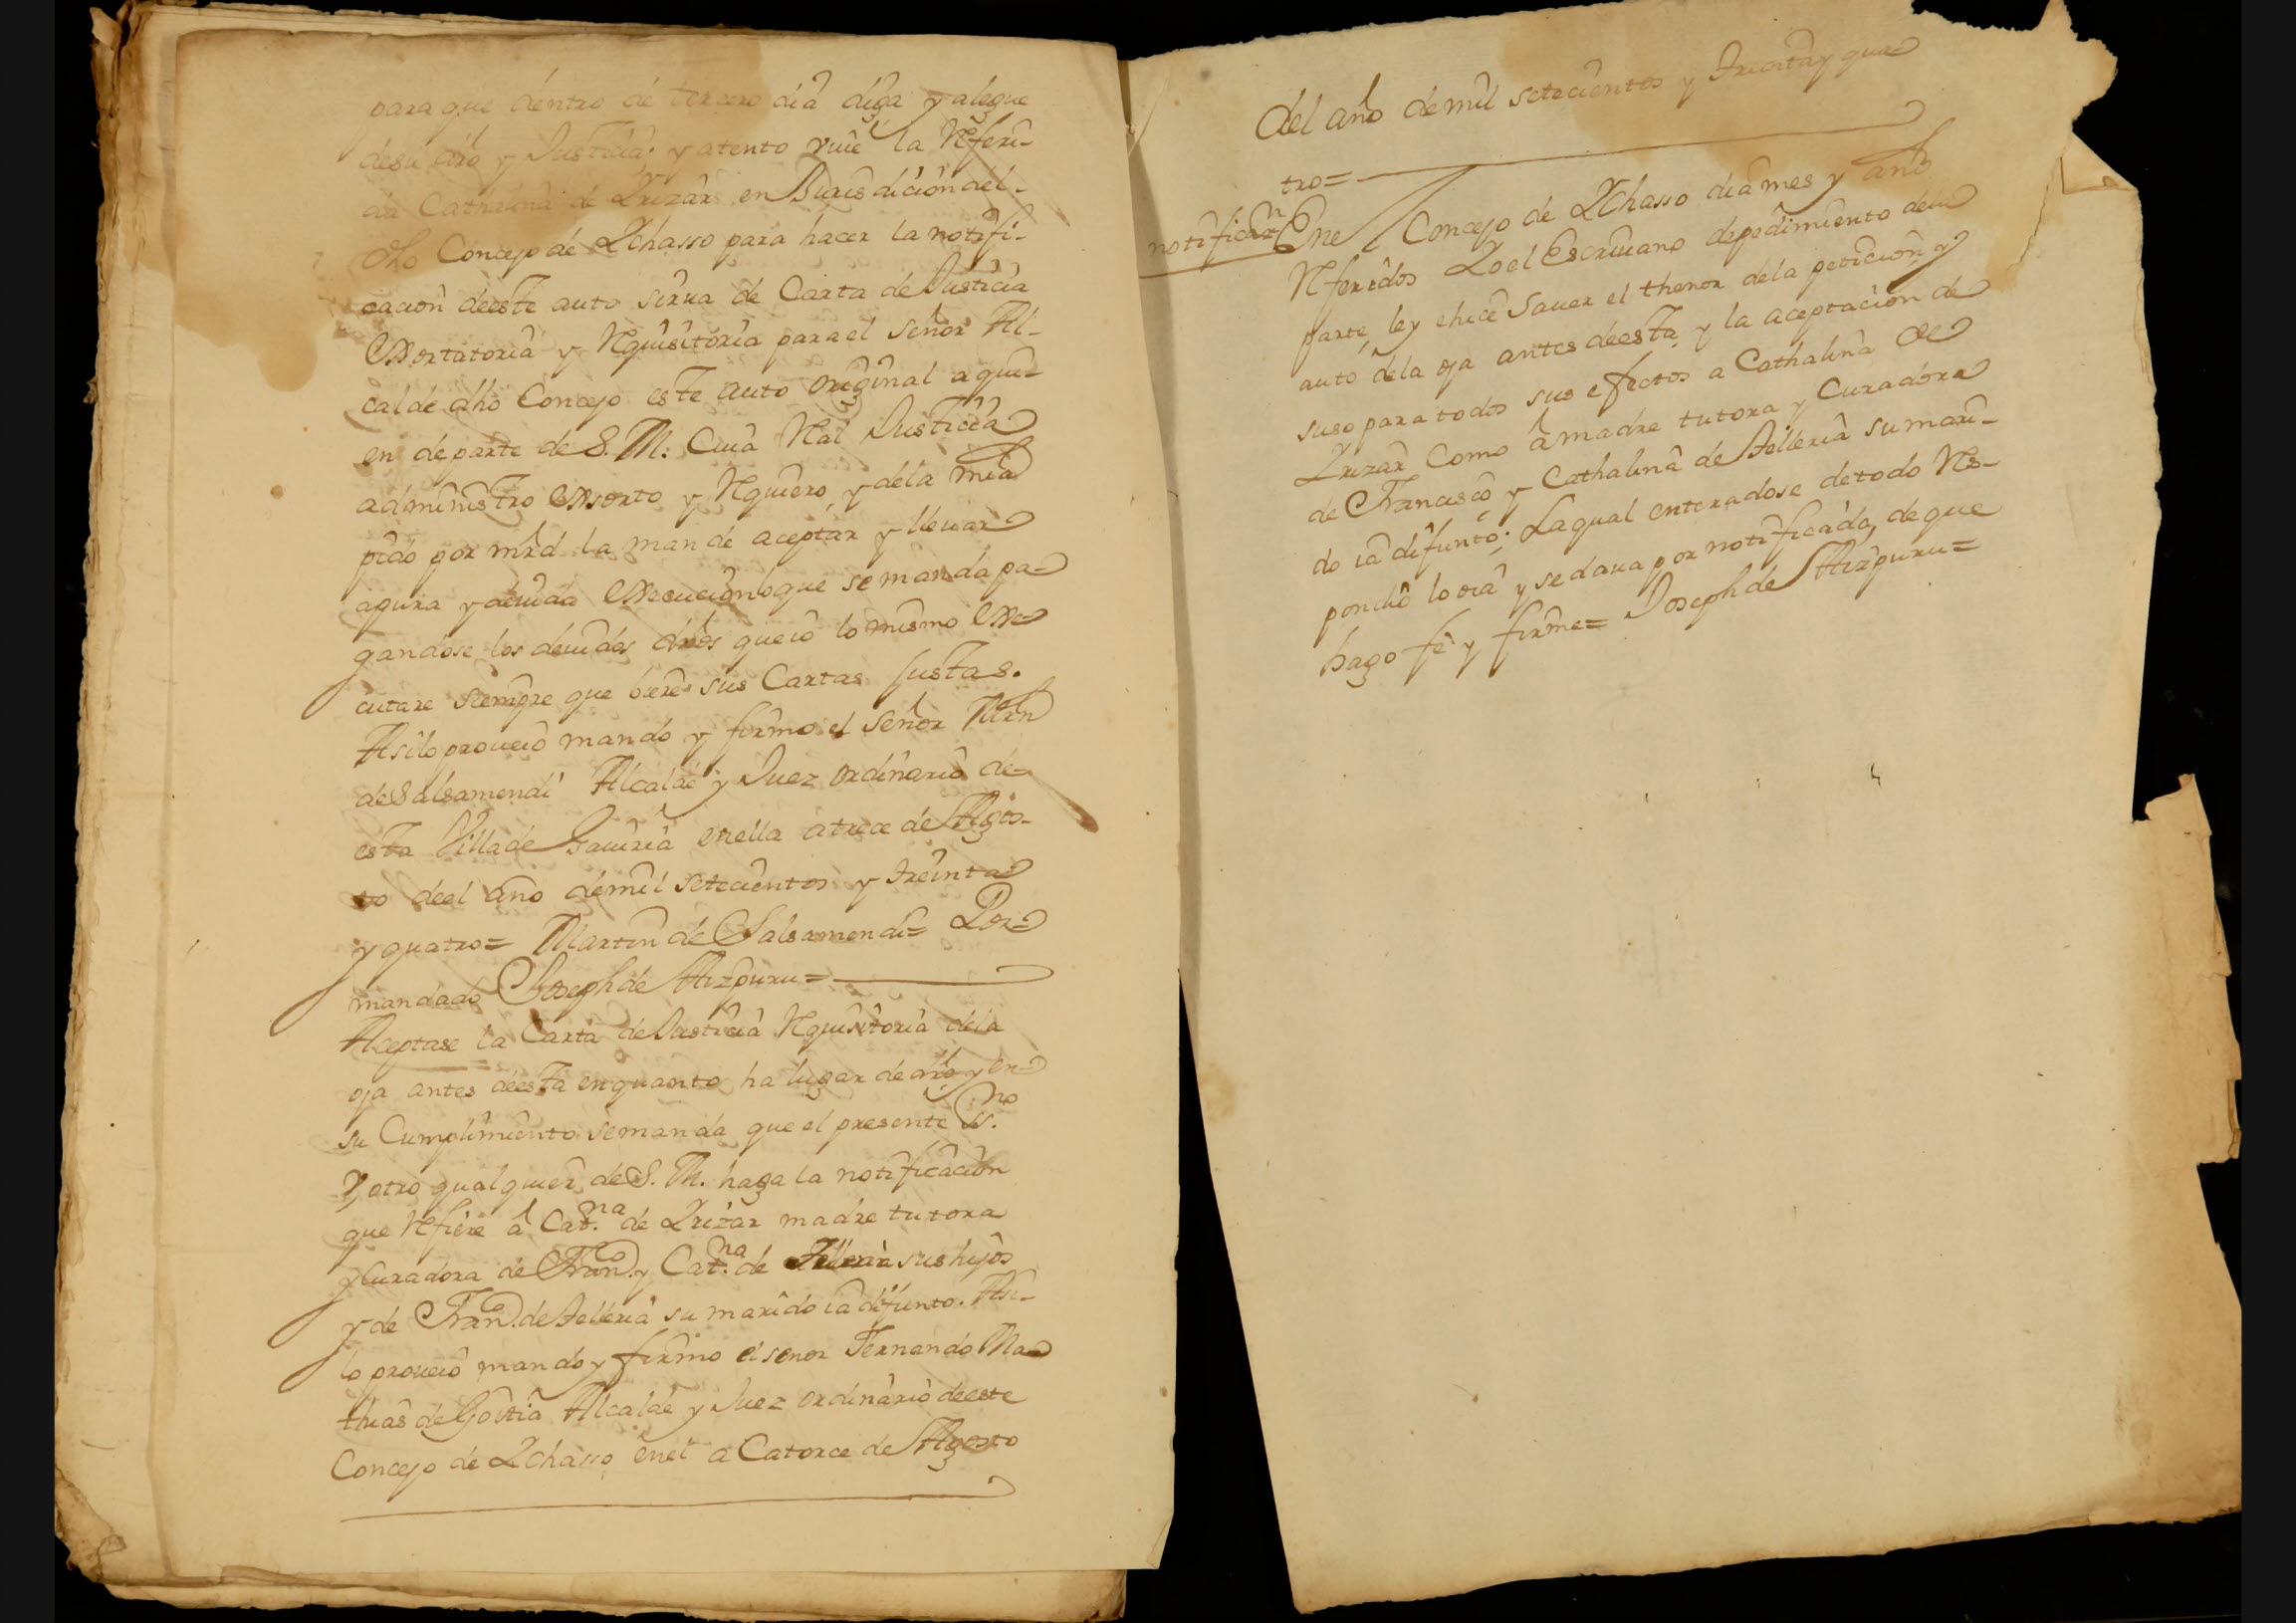 para que dentro de tercero dia diga y alegue
de su dro y Justicia: y atento viue la Referi-
da Cathalina de Yrizar en Jurisdicion del
dho Concejo de Ychasso para hacer la notifi-
cacion de este auto sirua de Carta de Justicia
Exortatoria y Requisitoria para el señor Al-
calde dho Concejo este auto original a qui-
en de parte de S. M. Cuia Real Justicia
administro Exsorto y Requiero, y de la mia
pido por mrd la man de aceptar y lleuar
a pura y deuida Execucion lo que se manda pa-
gandose los deuidos dros que io lo mismo Exe
cutare siempre que biere sus Cartas Justas.
Asi lo proueio mando y firmo el señor Mrn
de Salsamendi Alcalde y Juez ordinario de
esta Villa de Gauiria en ella a trece de Agos-
to de el año de mil setecientos y treinta
y quatro= Martin de Salsamendi= Por
mandado Joseph de Aizpuru=
Aceptase la Carta de Justicia Requisitoria de la
oja antes de esta en quanto ha lugar de dro y en
su Cumplimiento se manda que el presente ss.no
y otro qualquier de S. M. haga la notificacion
que Refiere á Cat.na de Yrizar madre tutora
y Curadora de Fran.co y Cat.na de Telleria sus hijos
y de Fran.co de Telleria su marido ia difunto. Asi-
lo proueio mando y firmo el señor Fernando Ma
thias de Goitia Alcalde y Juez ordinario de este
Concejo de Ychasso en el a Catorce de Agosto
del año de mil setecientos y treinta y qua
tro=
notificaz.n En el Concejo de Ychasso dia mes y año
Referidos Yo el Escriuano de pedimiento de la
parte, ley e hice Sauer el thenor de la peticion, y
auto de la oja antes de esta, y la aceptacion de
suso para todos sus efectos a Cathalina de
Yrizar Como á madre tutora y Curadora
de Francisco, y Cathalina de Telleria su mari-
do ia difunto; La qual enteradose de todo Res-
pondio lo oia y se daua por notificada, de que
hago fe y firme= Joseph de Aizpuru=